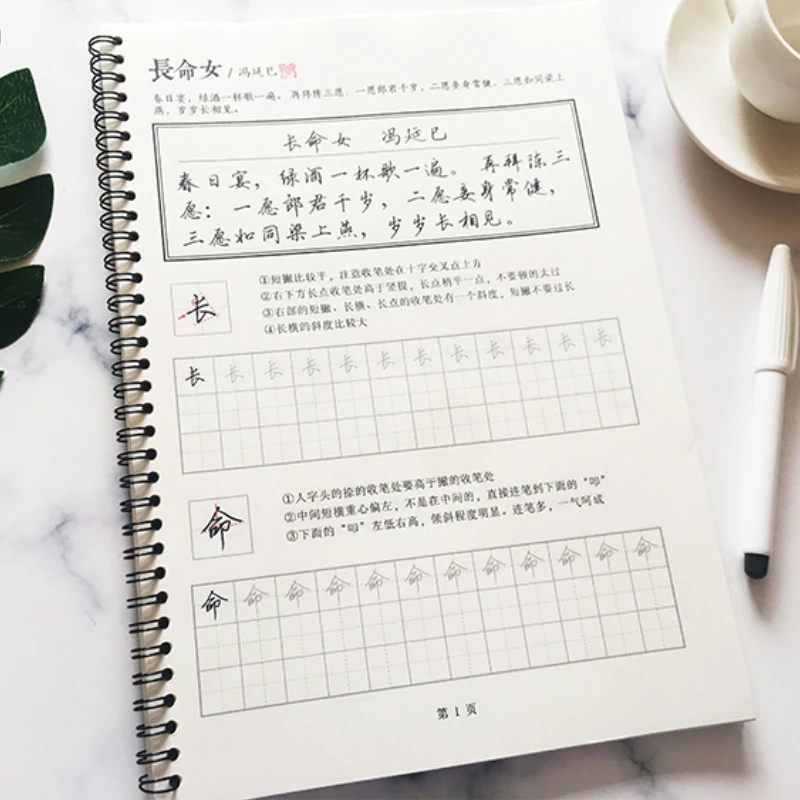 長命女 / 冯延巳
春日宴，绿酒一杯歌一遍。再拜陈三愿：一愿郎君千岁，二愿妾身常健，三愿如同梁上
燕，岁岁长相见。
长命女 冯延巳
春日宴，绿酒一杯歌一遍。再拜陈三
愿：一愿郎君千岁，二愿妾身常健，
三愿如同梁上燕，岁岁长相见。
长
①短撇比较平，注意收笔处在十字交叉点上方
②右下方长点收笔处高于竖提，长点稍平一点，不要顿的太过
③右部的短撇、长横、长点的收笔处有一个斜度，短撇不要过长
④长横的斜度比较大
长 长 长 长 长 长 长 长 长 长 长 长
命
①人字头的捺的收笔处要高于撇的收笔处
②中间短横重心偏左，不是在中间的，直接连笔到下面的“叩”
③下面的“叩”左低右高，倾斜程度明显。连笔多，一气呵成
命 命 命 命 命 命 命 命 命 命 命 命
第 1 页